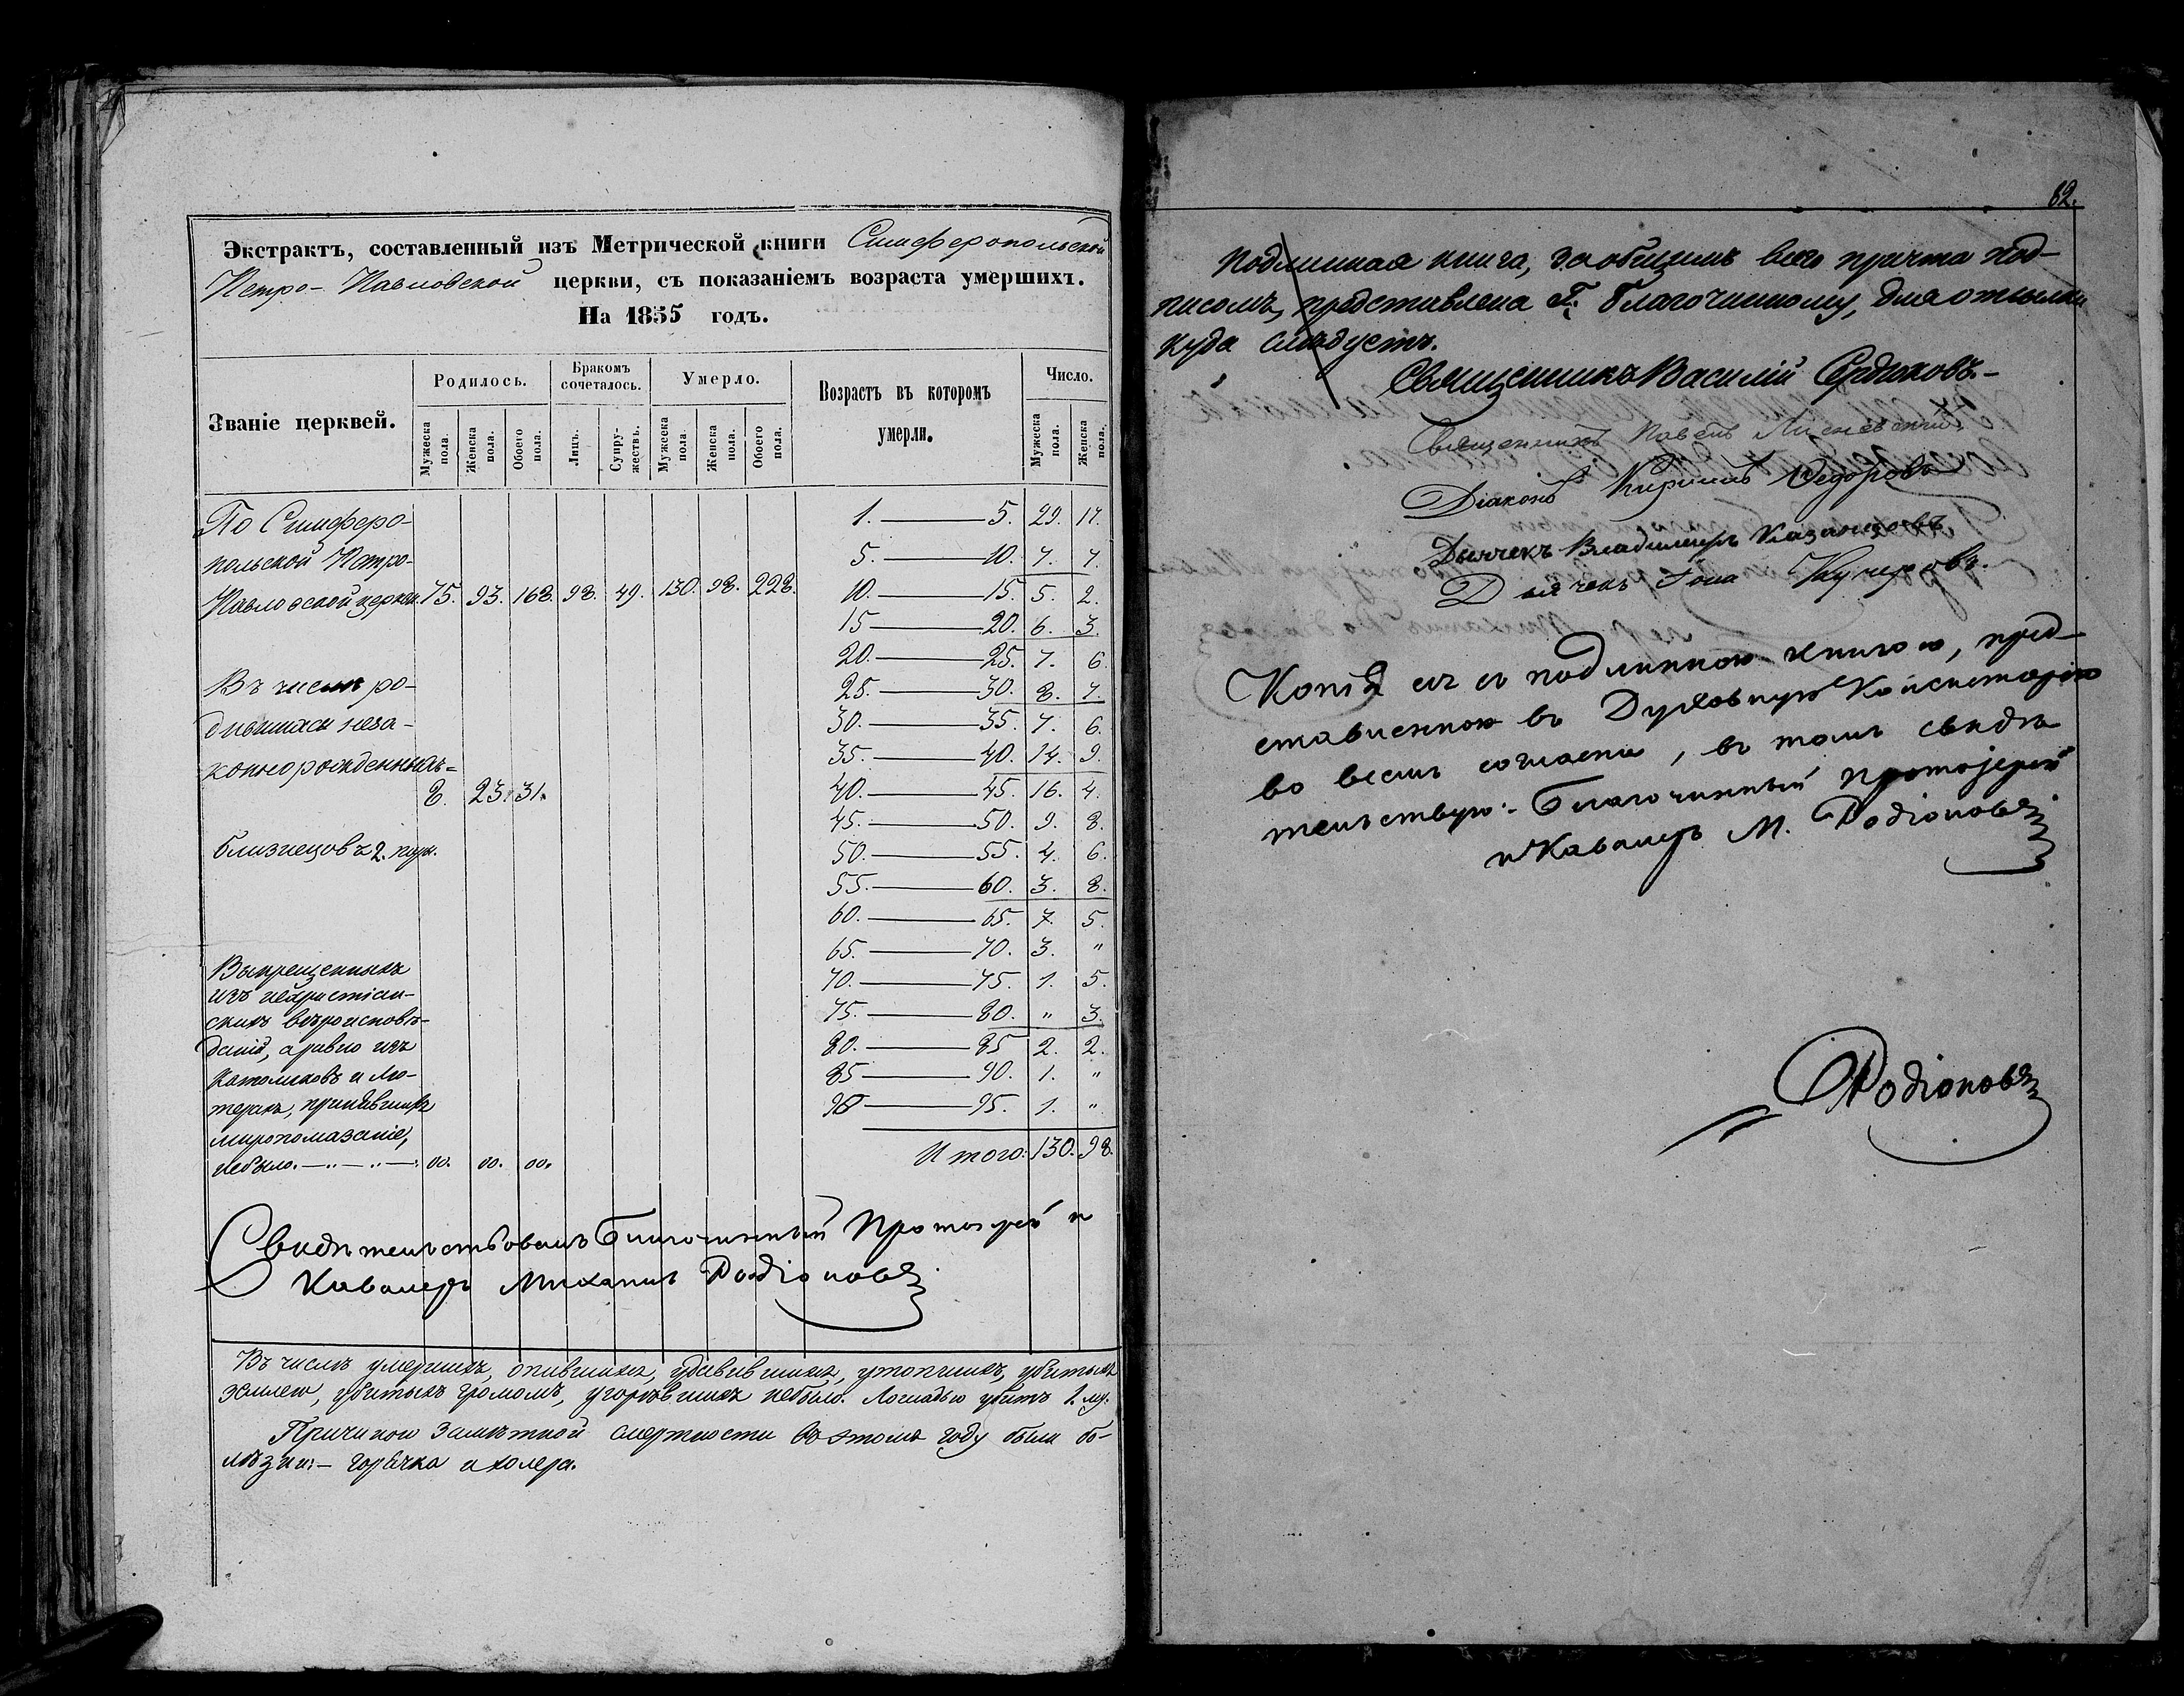 Экстрактъ, составленный изъ Метрической книги Симферопольской
Петро-Павловской церкви, съ показаніемъ возраста умершихъ.
На 1855 годъ.
Званіе церквей. Родилось. Бракомъ сочеталось. Умерло. Возрастъ въ которомъ умерли. Число.
Мужеска пола. Женска пола. Обоего пола. Лицъ. Супружествъ. Мужеска пола. Женска пола. Обоего пола. Мужеска пола. Женска пола.
По Симферо-
польской Петро-
Павловской церкви. 75. 93. 168. 98. 49. 130. 98. 228.
Въ числѣ ро-
дившихся неза-
коннорожденныхъ=
8. 23. 31.
Близнецовъ 2. пары.
Выкрещенныхъ
изъ нехристіан-
скихъ вѣроисповѣ-
даній, а равно изъ
Католиковъ и Лю-
теранъ, принявшихъ
миропомазаніе,
небыло. — „ — „ — : 00. 00. 00.
1. — 5. 29. 17.
5. — 10. 7. 7.
10. — 15. 5. 2.
15 — 20. 6. 3.
20. — 25. 7. 6.
25. — 30. 8. 7.
30. — 35. 7. 6.
35. — 40. 14. 9.
40. — 45. 16. 4.
45. — 50. 9. 8.
50. — 55. 4. 6.
55. — 60. 3. 8.
60. — 65. 7. 5.
65. — 70. 3. „
70. — 75. 1. 5.
75. — 80. „ 3.
80. — 85 2. 2.
85 — 90. 1. „
90 — 95. 1. „
Итого: 130. 98.
Свидѣтельствовалъ Благочинный Протоіерей и
Кавалеръ Михаилъ Родіоновъ
Въ числѣ умершихъ, опившихся, удавившихся, утопшихъ, убитыхъ
землею, убитыхъ громомъ, угорѣвшихъ небыло. Лошадью убитъ 1. му.
Причиною замѣтной смертности въ этомъ году были бо-
лѣзни:- горячка и холера.
62.
Подлинная книга, за общимъ всего причта под-
писомъ, представлена Г. Благочинному, для отсылки
куда слѣдуетъ.
Священникъ Василій Сердюковъ.-
Священникъ Павелъ
Діаконъ Кириллъ Федоровъ
Дьячекъ Владимиръ Казанцовъ
Дьячекъ Іона Кучеровъ.
Копія сія съ подлинною книгою, пред-
ставленною въ Духовную Консисторію
во всемъ согласна, въ томъ свидѣ
тельствую:- Благочинный Протоіерей
и Кавалеръ М. Родіоновъ
Родіоновъ